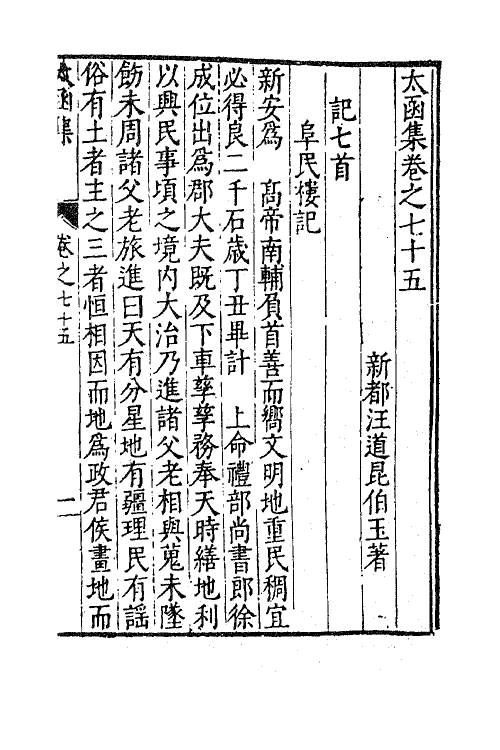 太函集卷之七十五
新都汪道昆伯玉著
記七首
阜民樓記
新安爲　高帝南輔負首善而嚮文明地重民稠宜
必得良二千石歲丁丑畢計　上命禮部尚書郎徐
成位出爲郡大夫既及下車孳孳務奉天時繕地利
以興民事頃之境內大治乃進諸父老相與蒐未墜
飭未周諸父老旅進曰天有分星地有疆理民有謡
俗有土者主之三者恒相因而地爲政君侯畫地而
太函集
卷之七十五
一